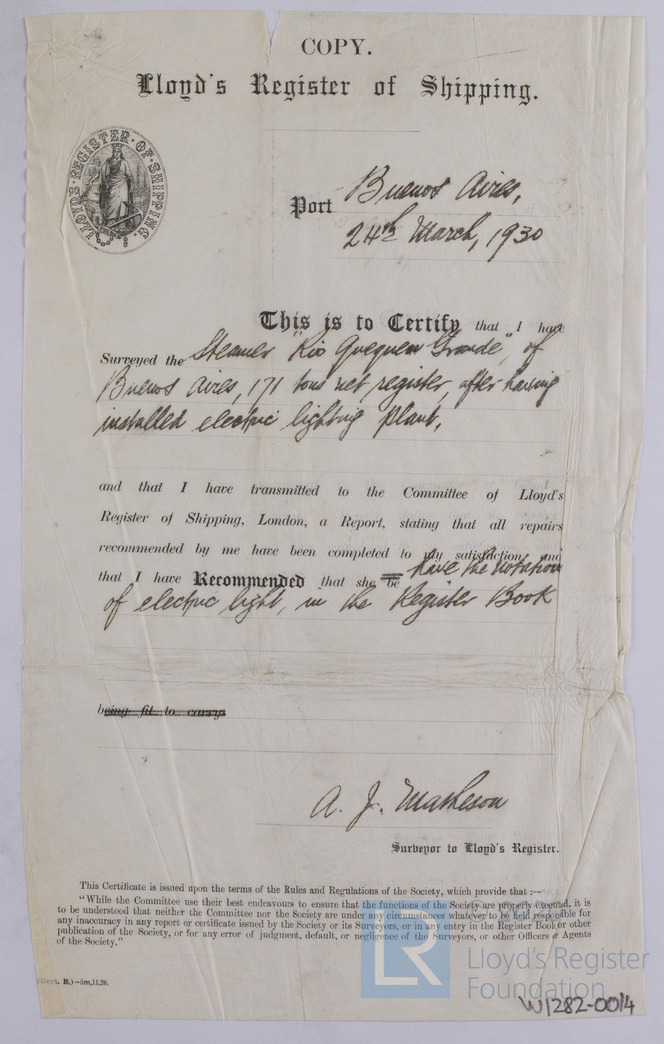 COPY.
Lloyd's Register of Shipping.
LLOYD'S·REGISTER·OF·SHIPPING.
Port Buenos Aires,
24th March, 1930
This is to Certify that I have
Surveyed the Steamer "Rio Quequen Grande", of
Buenos Aires, 171 tons net register, after having
installed electric lighting plant,
and that I have transmitted to the Committee of Lloyd's
Register of Shipping, London, a Report, stating that all repairs
recommended by me have been completed to my satisfaction and
that I have Recommended that she be have the notation
of electric light, in the Register Book
being fit to carry
A. J. Matheson
Surveyor to Lloyd's Register.
This Certificate is issued upon the terms of the Rules and Regulations of the Society, which provide that :—
"While the Committee use their best endeavours to ensure that the functions of the Society are properly executed, it is
to be understood that neither the Committee nor the Society are under any circumstances whatever to be held responsible for
any inaccuracy in any report or certificate issued by the Society or its Surveyors, or in any entry in the Register Book or other
publication of the Society, or for any error of judgment, default, or negligence of the Surveyors, or other Officers or Agents
of the Society."
(Cert. B.)—5m,11,26.
LR
Lloyd's Register
Foundation
W1282-0014